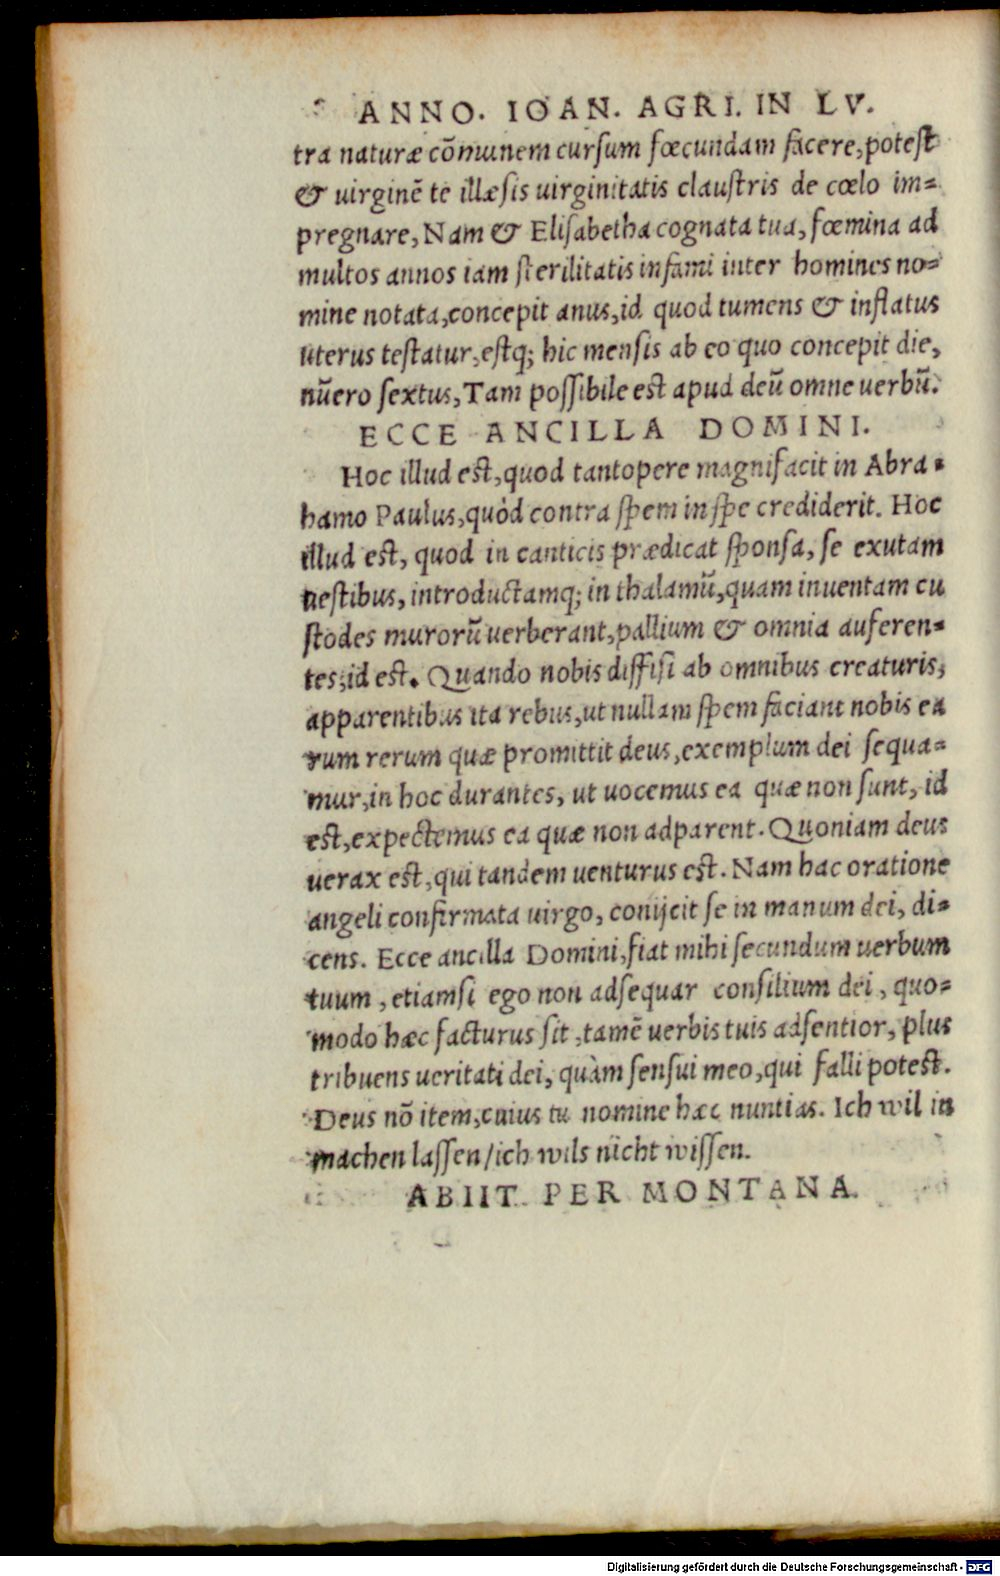 ANNO. IOAN. AGRI. IN LV.
tra naturæ cõmunem cursum fœcundam facere, potest
& uirginẽ te illæsis uirginitatis claustris de cœlo im-
pregnare, Nam & Elisabetha cognata tua, fœmina ad
multos annos iam sterilitatis infami inter homines no-
mine notata, concepit anus, id quod tumens & inflatus
uterus testatur, estq; hic mensis ab eo quo concepit die,
nũero sextus, Tam possibile est apud deũ omne uerbũ.
ECCE ANCILLA DOMINI.
Hoc illud est, quod tantopere magnifacit in Abra-
hamo Paulus, quòd contra spem in spe crediderit. Hoc
illud est, quod in canticis prædicat sponsa, se exutam
uestibus, introductamq; in thalamũ, quam inuentam cu
stodes murorũ uerberant, pallium & omnia auferen-
tes, id est. Quando nobis diffisi ab omnibus creaturis,
apparentibus ita rebus, ut nullam spem faciant nobis ea
rum rerum quæ promittit deus, exemplum dei sequa-
mur, in hoc durantes, ut uocemus ea quæ non sunt, id
est, expectemus ea quæ non adparent. Quoniam deus
uerax est, qui tandem uenturus est. Nam hac oratione
angeli confirmata uirgo, conijcit se in manum dei, di-
cens. Ecce ancilla Domini, fiat mihi secundum uerbum
tuum, etiamsi ego non adsequar consilium dei, quo-
modo hæc facturus sit, tamẽ uerbis tuis adsentior, plus
tribuens ueritati dei, quàm sensui meo, qui falli potest.
Deus nõ item, cuius tu nomine hæc nuntias. Ich wil in
machen lassen/ich wils nicht wissen.
ABIIT PER MONTANA.
Digitalisierung gefördert durch die Deutsche Forschungsgemeinschaft - DFG